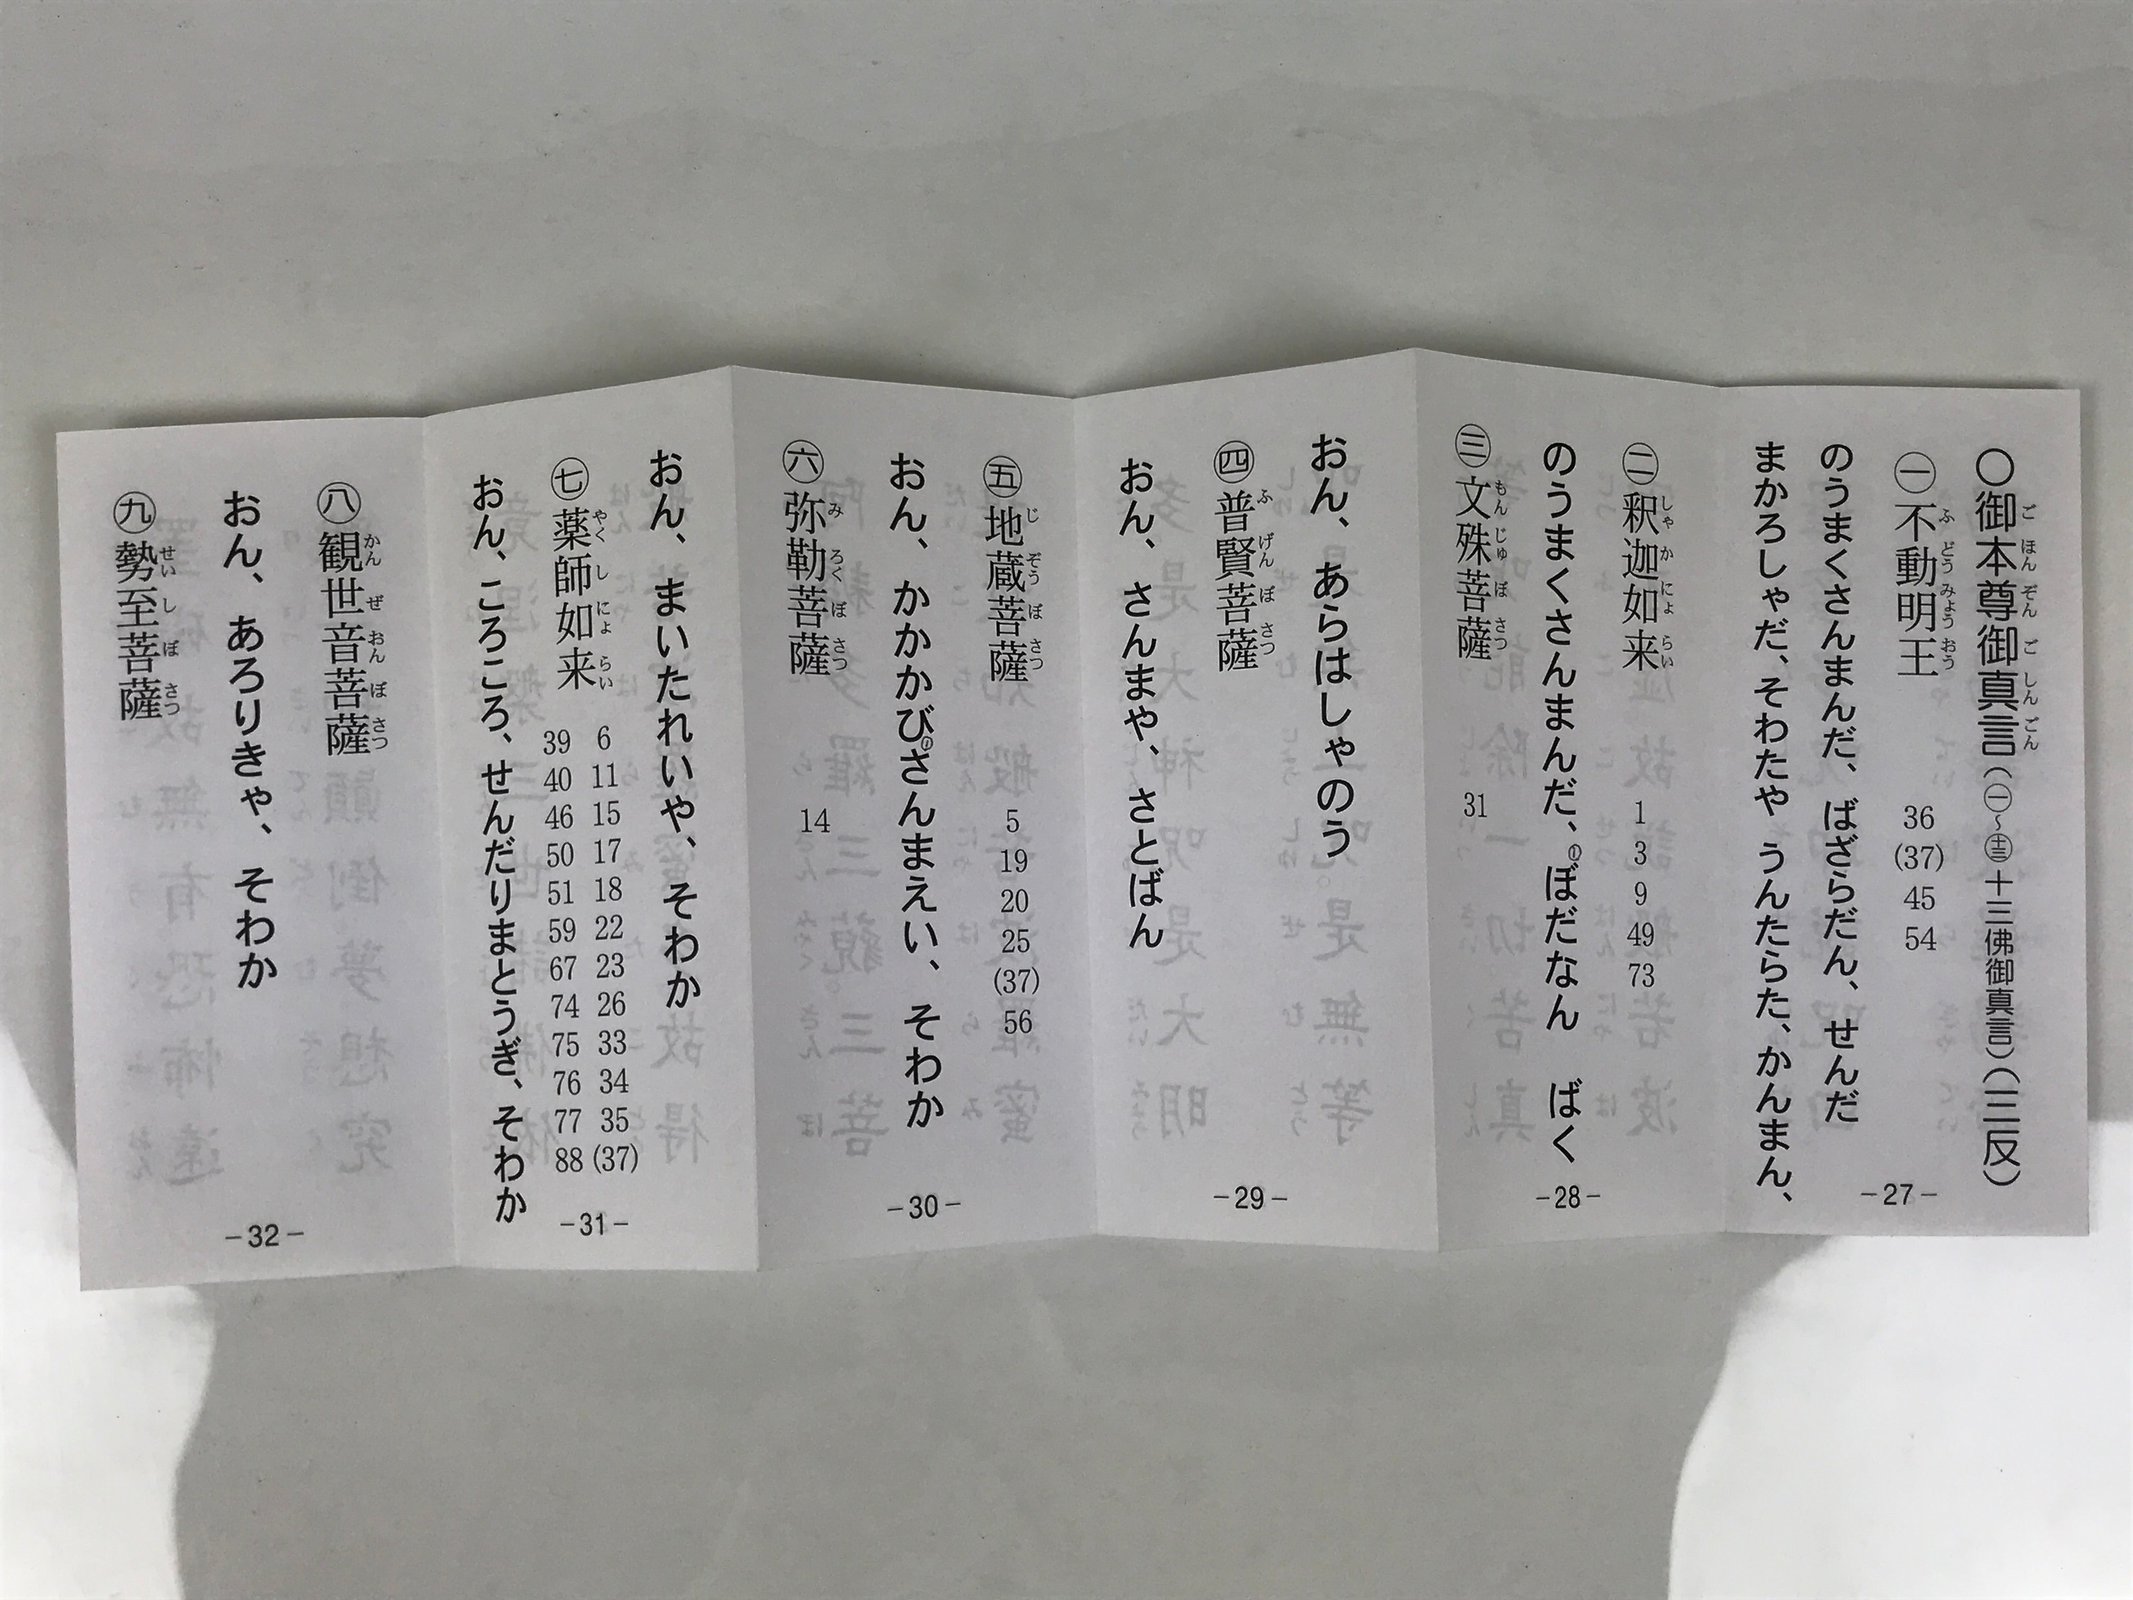 〇御本尊御真言(㊀～㊉㊂十三佛御真言)(三反)
㊀不動明王 36 (37) 45 54
のうまくさんまんだ、ばざらだん、せんだ
まかろしゃだ、そわたや うんたらた、かんまん、
－27－
㊁釈迦如来 1 3 9 49 73
のうまくさんまんだ、ぼだなん ばく
㊂文殊菩薩 31
－28－
おん、あらはしゃのう
㊃普賢菩薩
おん、さんまや、さとばん
－29－
㊄地蔵菩薩 5 19 20 25 (37) 56
おん、かかかびさんまえい、そわか
㊅弥勒菩薩 14
－30－
おん、まいたれいや、そわか
㊆薬師如来 6 11 15 17 18 22 23 26 33 34 35 (37)
39 40 46 50 51 59 67 74 75 76 77 88
おん、ころころ、せんだりまとうぎ、そわか
－31－
㊇観世音菩薩
おん、あろりきゃ、そわか
㊈勢至菩薩
－32－